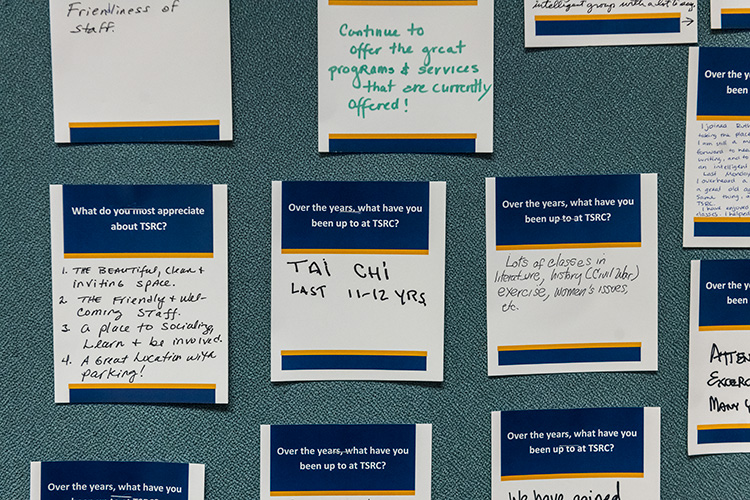 Friendliness of
staff.
Continue to
offer the great
programs & services
that are currently
offered!
intelligent group with a lot to say
→
Over the y
been
I joined Ruth
taking the place
I am still a m
forward to
writing, and
an intelligent
Last Monday
I overheard a
a great old
same thing,
TSRC.
I have enjoyed
classes. I helped
What do you most appreciate
about TSRC?
1. THE BEAUTIFUL, Clean +
inviting space.
2. THE Friendly + Wel-
coming Staff.
3. a place to Socialize,
Learn + be involved.
4. A Great Location with
parking!
Over the years, what have you
been up to at TSRC?
TAI CHI
LAST 11-12 YRS
Over the years, what have you
been up to at TSRC?
Lots of classes in
literature, history (Civil War)
exercise, women's issues,
etc.
Over the y
been
ATTEN
EXCERC
MANY Y
Over the years, what have you
been up to at TSRC?
Over the years, what have you
been up to at TSRC?
Over the years, what have you
been up to at TSRC?
We have gained